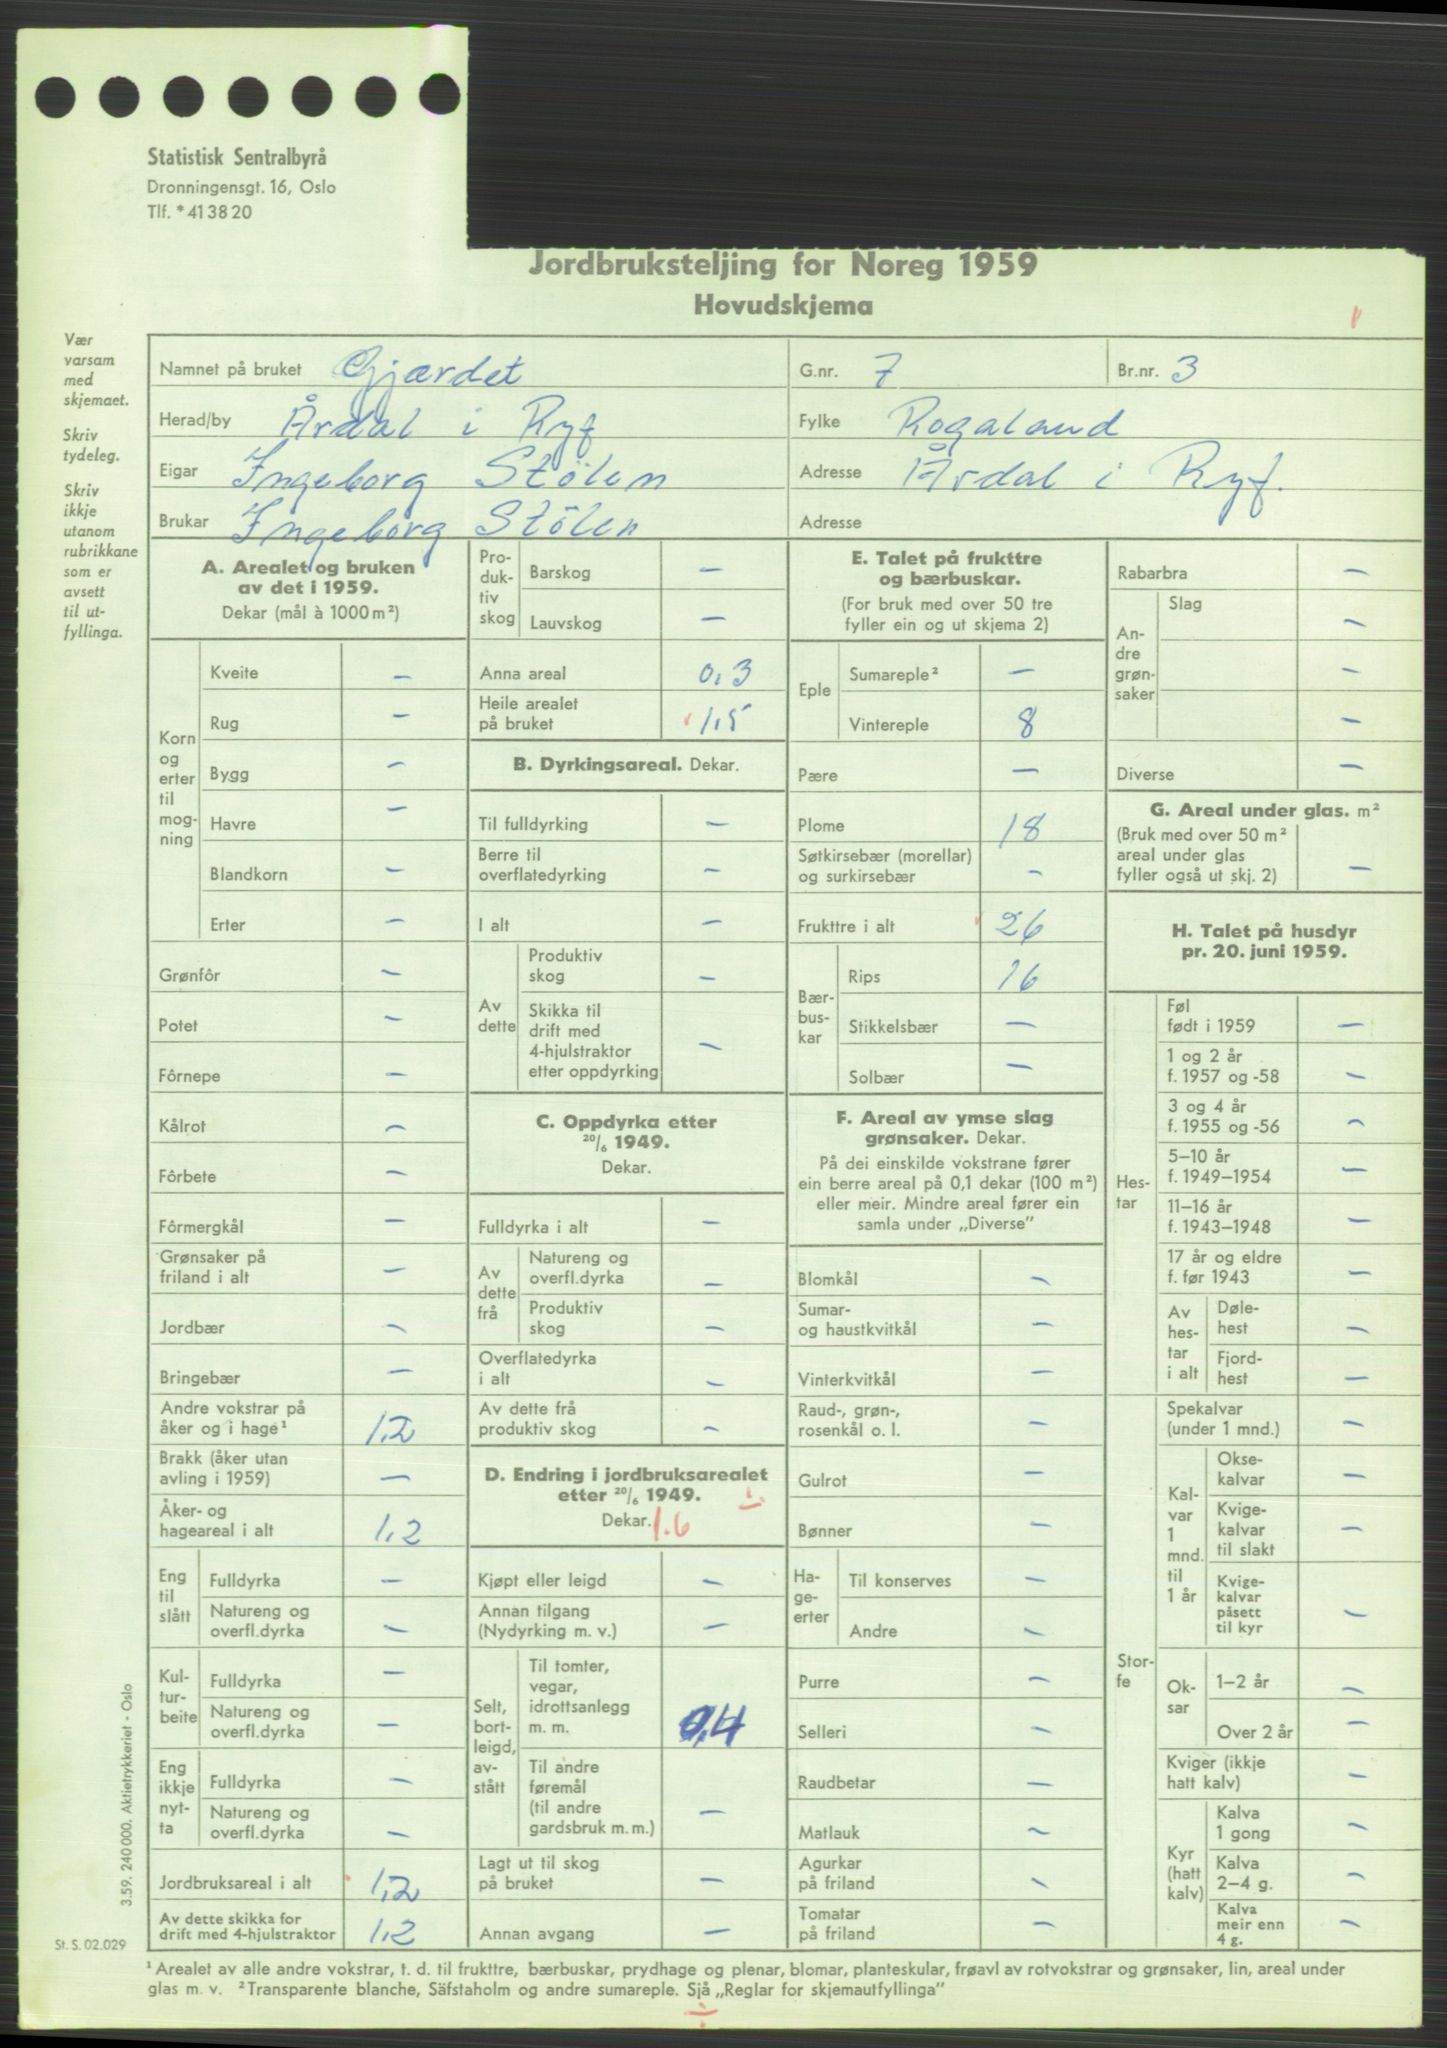 Statistisk Sentralbyrå
Dronningensgt. 16, Oslo
Tlf. *41 38 20
Jordbruksteljing for Noreg 1959
Hovudskjema
Vær
varsam
med
skjemaet.
Skriv
tydeleg.
Skriv
ikkje
utanom
rubrikkane
som er
avsett
til ut-
fyllinga.
Namnet på bruket Gjærdet G.nr. 7 Br.nr. 3
Herad/by Årdal i Ryf Fylke Rogaland
Eigar Ingeborg Stölen Adresse Årdal i Ryf.
Brukar Ingeborg Stölen Adresse
A. Arealet og bruken
av det i 1959.
Dekar (mål à 1000 m²)
Korn
og
erter
til
mog-
ning
Kveite –
Rug –
Bygg –
Havre –
Blandkorn –
Erter –
Grønfôr –
Potet –
Fôrnepe –
Kålrot –
Fôrbete –
Fôrmergkål –
Grønsaker på
friland i alt –
Jordbær –
Bringebær –
Andre vokstrar på
åker og i hage¹ 1,2
Brakk (åker utan
avling i 1959) –
Åker- og
hageareal i alt 1,2
Eng
til
slått
Fulldyrka –
Natureng og
overfl.dyrka –
Kul-
tur-
beite
Fulldyrka –
Natureng og
overfl.dyrka –
Eng
ikkje
nyt-
ta
Fulldyrka –
Natureng og
overfl.dyrka –
Jordbruksareal i alt 1,2
Av dette skikka for
drift med 4-hjulstraktor 1,2
Pro-
duk-
tiv
skog
Barskog –
Lauvskog –
Anna areal 0,3
Heile arealet
på bruket 1,5
B. Dyrkingsareal. Dekar.
Til fulldyrking –
Berre til
overflatedyrking –
I alt –
Av
dette
Produktiv
skog –
Skikka til
drift med
4-hjulstraktor
etter oppdyrking –
C. Oppdyrka etter
20/6 1949.
Dekar.
Fulldyrka i alt –
Av
dette
frå
Natureng og
overfl.dyrka –
Produktiv
skog –
Overflatedyrka
i alt –
Av dette frå
produktiv skog –
D. Endring i jordbruksarealet
etter 20/6 1949.
Dekar. 1.6
Kjøpt eller leigd –
Annan tilgang
(Nydyrking m. v.) –
Selt,
bort-
leigd,
av-
stått
Til tomter,
vegar,
idrottsanlegg
m. m. 0,4
Til andre
føremål
(til andre
gardsbruk m. m.) –
Lagt ut til skog
på bruket –
Annan avgang –
E. Talet på frukttre
og bærbuskar.
(For bruk med over 50 tre
fyller ein og ut skjema 2)
Eple
Sumareple² –
Vintereple 8
Pære –
Plome 18
Søtkirsebær (morellar)
og surkirsebær –
Frukttre i alt 26
Bær-
bus-
kar
Rips 16
Stikkelsbær –
Solbær –
F. Areal av ymse slag
grønsaker. Dekar.
På dei einskilde vokstrane fører
ein berre areal på 0,1 dekar (100 m²)
eller meir. Mindre areal fører ein
samla under „Diverse”
Blomkål –
Sumar-
og haustkvitkål –
Vinterkvitkål –
Raud-, grøn-,
rosenkål o. l. –
Gulrot –
Bønner –
Ha-
ge-
erter
Til konserves –
Andre –
Purre –
Selleri –
Raudbetar –
Matlauk –
Agurkar
på friland –
Tomatar
på friland –
Rabarbra –
An-
dre
grøn-
saker
Slag –
–
–
Diverse –
G. Areal under glas. m²
(Bruk med over 50 m²
areal under glas
fyller også ut skj. 2) –
H. Talet på husdyr
pr. 20. juni 1959.
Hes-
tar
Føl
født i 1959 –
1 og 2 år
f. 1957 og -58 –
3 og 4 år
f. 1955 og -56 –
5–10 år
f. 1949–1954 –
11–16 år
f. 1943–1948 –
17 år og eldre
f. før 1943 –
Av
hes-
tar
i alt
Døle-
hest –
Fjord-
hest –
Stor-
fe
Spekalvar
(under 1 mnd.) –
Kal-
var
1
mnd.
til
1 år
Okse-
kalvar –
Kvige-
kalvar
til slakt –
Kvige-
kalvar
påsett
til kyr –
Ok-
sar
1–2 år –
Over 2 år –
Kviger (ikkje
hatt kalv) –
Kyr
(hatt
kalv)
Kalva
1 gong –
Kalva
2–4 g. –
Kalva
meir enn
4 g. –
3.59. 240 000. Aktietrykkeriet - Oslo
St. S. 02.029
¹ Arealet av alle andre vokstrar, t. d. til frukttre, bærbuskar, prydhage og plenar, blomar, planteskular, frøavl av rotvokstrar og grønsaker, lin, areal under
glas m. v. ² Transparente blanche, Säfstaholm og andre sumareple. Sjå „Reglar for skjemautfyllinga”